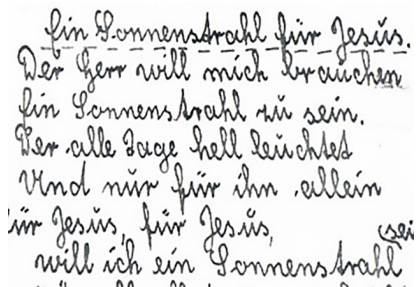 Ein Sonnenstrahl für Jesus.
Der Herr will mich brauchen
Ein Sonnenstrahl zu sein.
Der alle Tage hell leuchtet
Und nur für ihn allein
ür Jesus, für Jesus,
(sei
will ich ein Sonnenstrahl